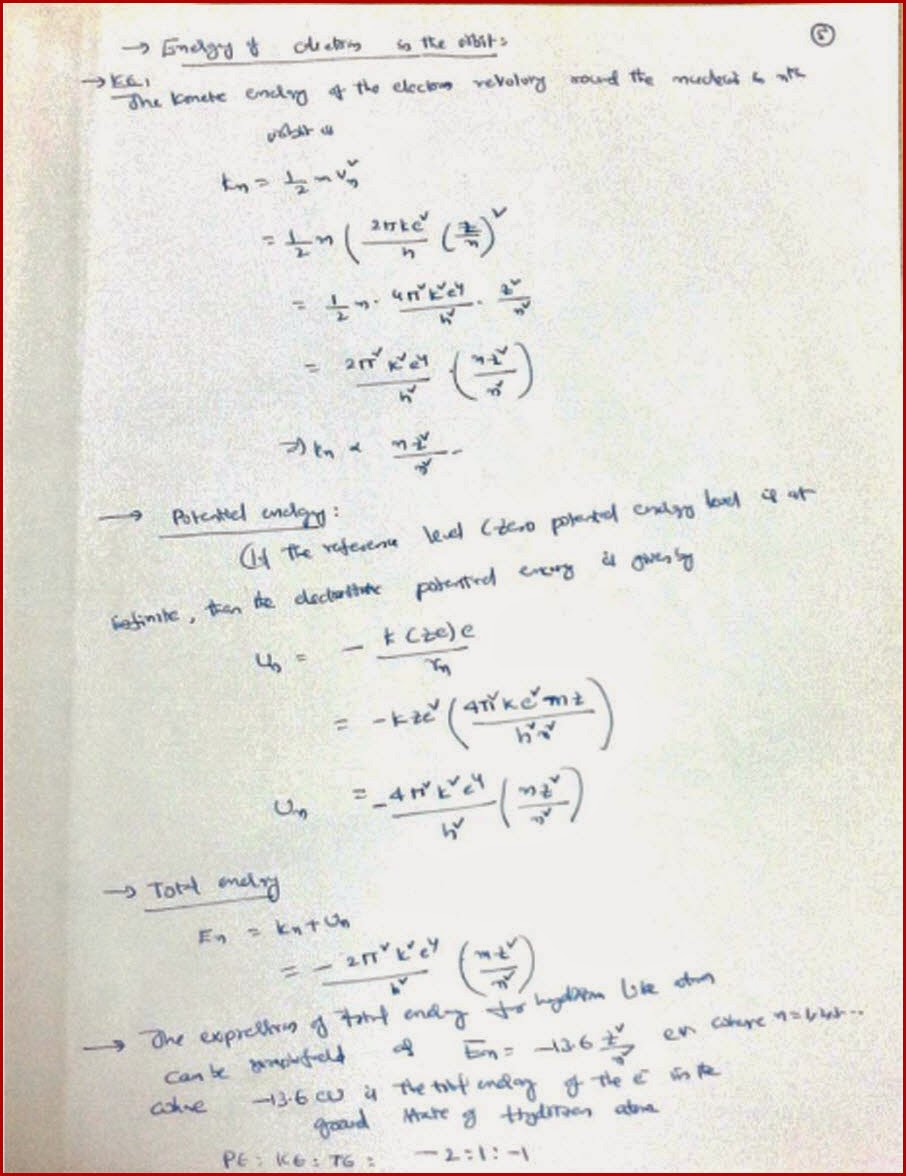 5
→ Energy of electron in the orbit:
→ KE:
The kinetic energy of the electron revolving round the nucleus in nth
orbit is
Kn = 1/2 m vn²
= 1/2 m (2πke²/h (z/n))²
= 1/2 m · 4π²k²e⁴/h² · z²/n²
= 2π²k²e⁴/h² (mz²/n²)
⇒ Kn ∝ mz²/n².
→ Potential energy:
If the reference level (zero potential energy level is at
infinite, then the electrostatic potential energy is given by
Un = - k(ze)e/rn
= -kze² (4π²ke²mz/h²n²)
Un = -4π²k²e⁴/h² (mz²/n²)
→ Total energy
En = Kn + Un
= - 2π²k²e⁴/h² (mz²/n²)
→ The expression of total energy for hydrogen like atom
can be simplified as En = -13.6 z²/n² ev where n=1,2,3...
where -13.6 eV is the total energy of the e⁻ in the
ground state of Hydrogen atom
PE : KE : TE = -2:1:-1